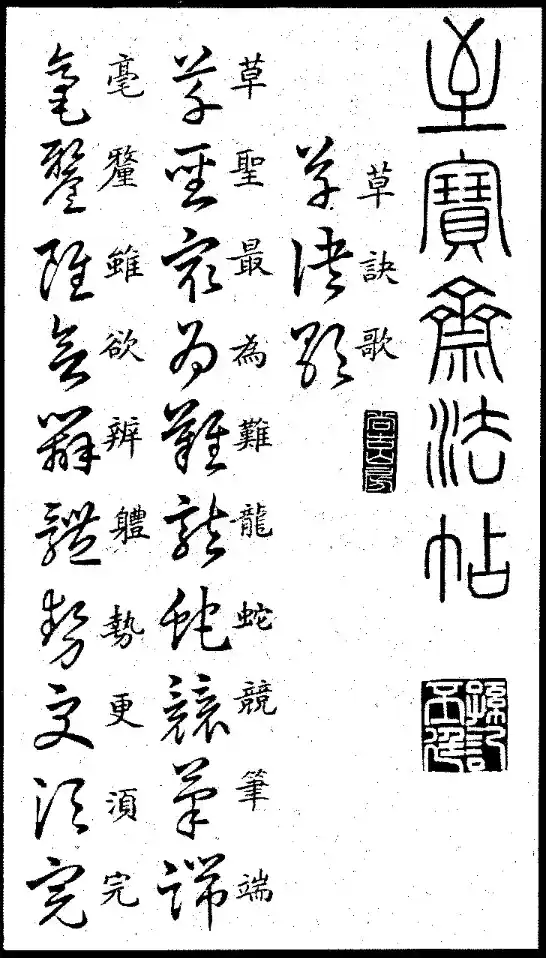 至寶齋法帖
草訣歌
草訣歌
草聖最為難龍蛇競筆端
草聖最為難龍蛇競筆端
毫釐雖欲辨軆勢更湏完
毫釐雖欲辨體勢更須完